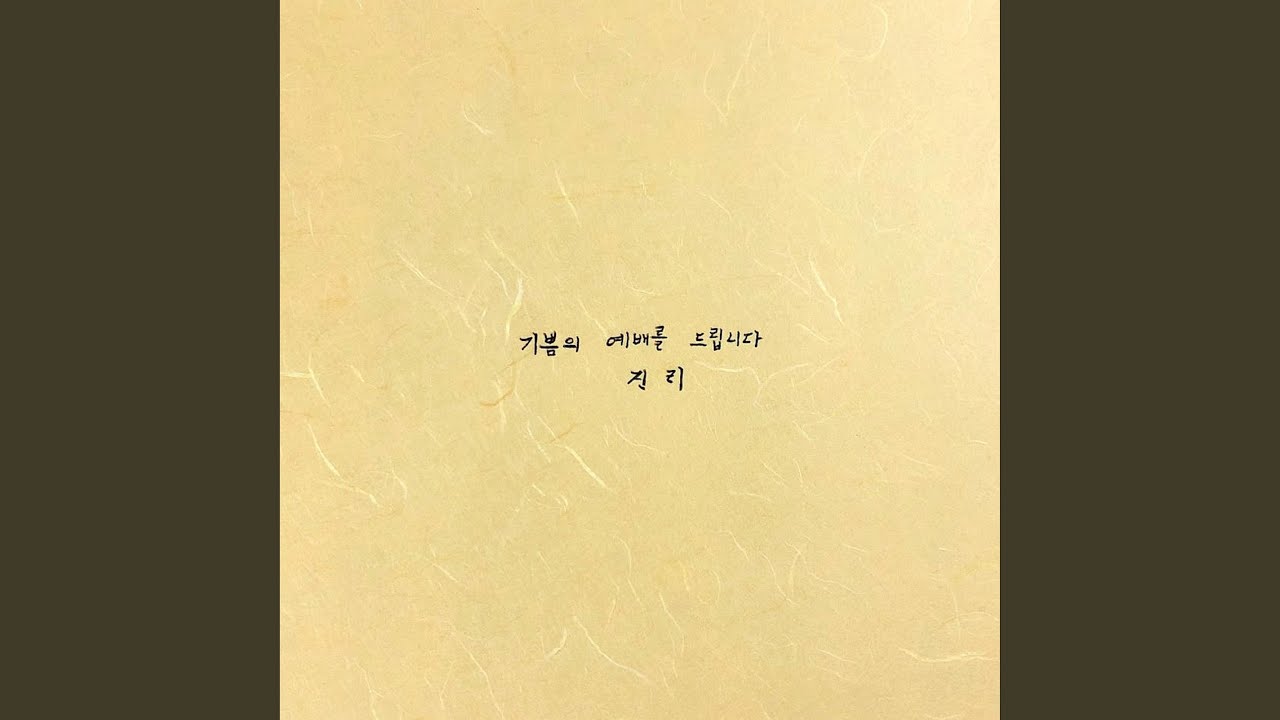 기쁨의 예배를 드립니다
진리